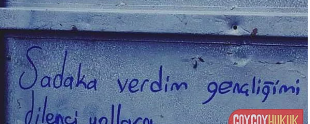 Sadaka verdim gençliğimi
dilenci yollara
COYCOYHUKUK